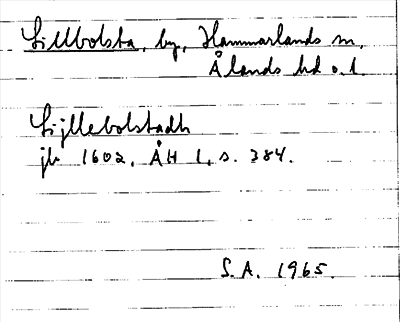 Lillbolsta, by, Hammarlands sn,
Ålands hd o. l.
Lijllebolstadh
jb 1602, ÅH 1, s. 384.
S.A. 1965.